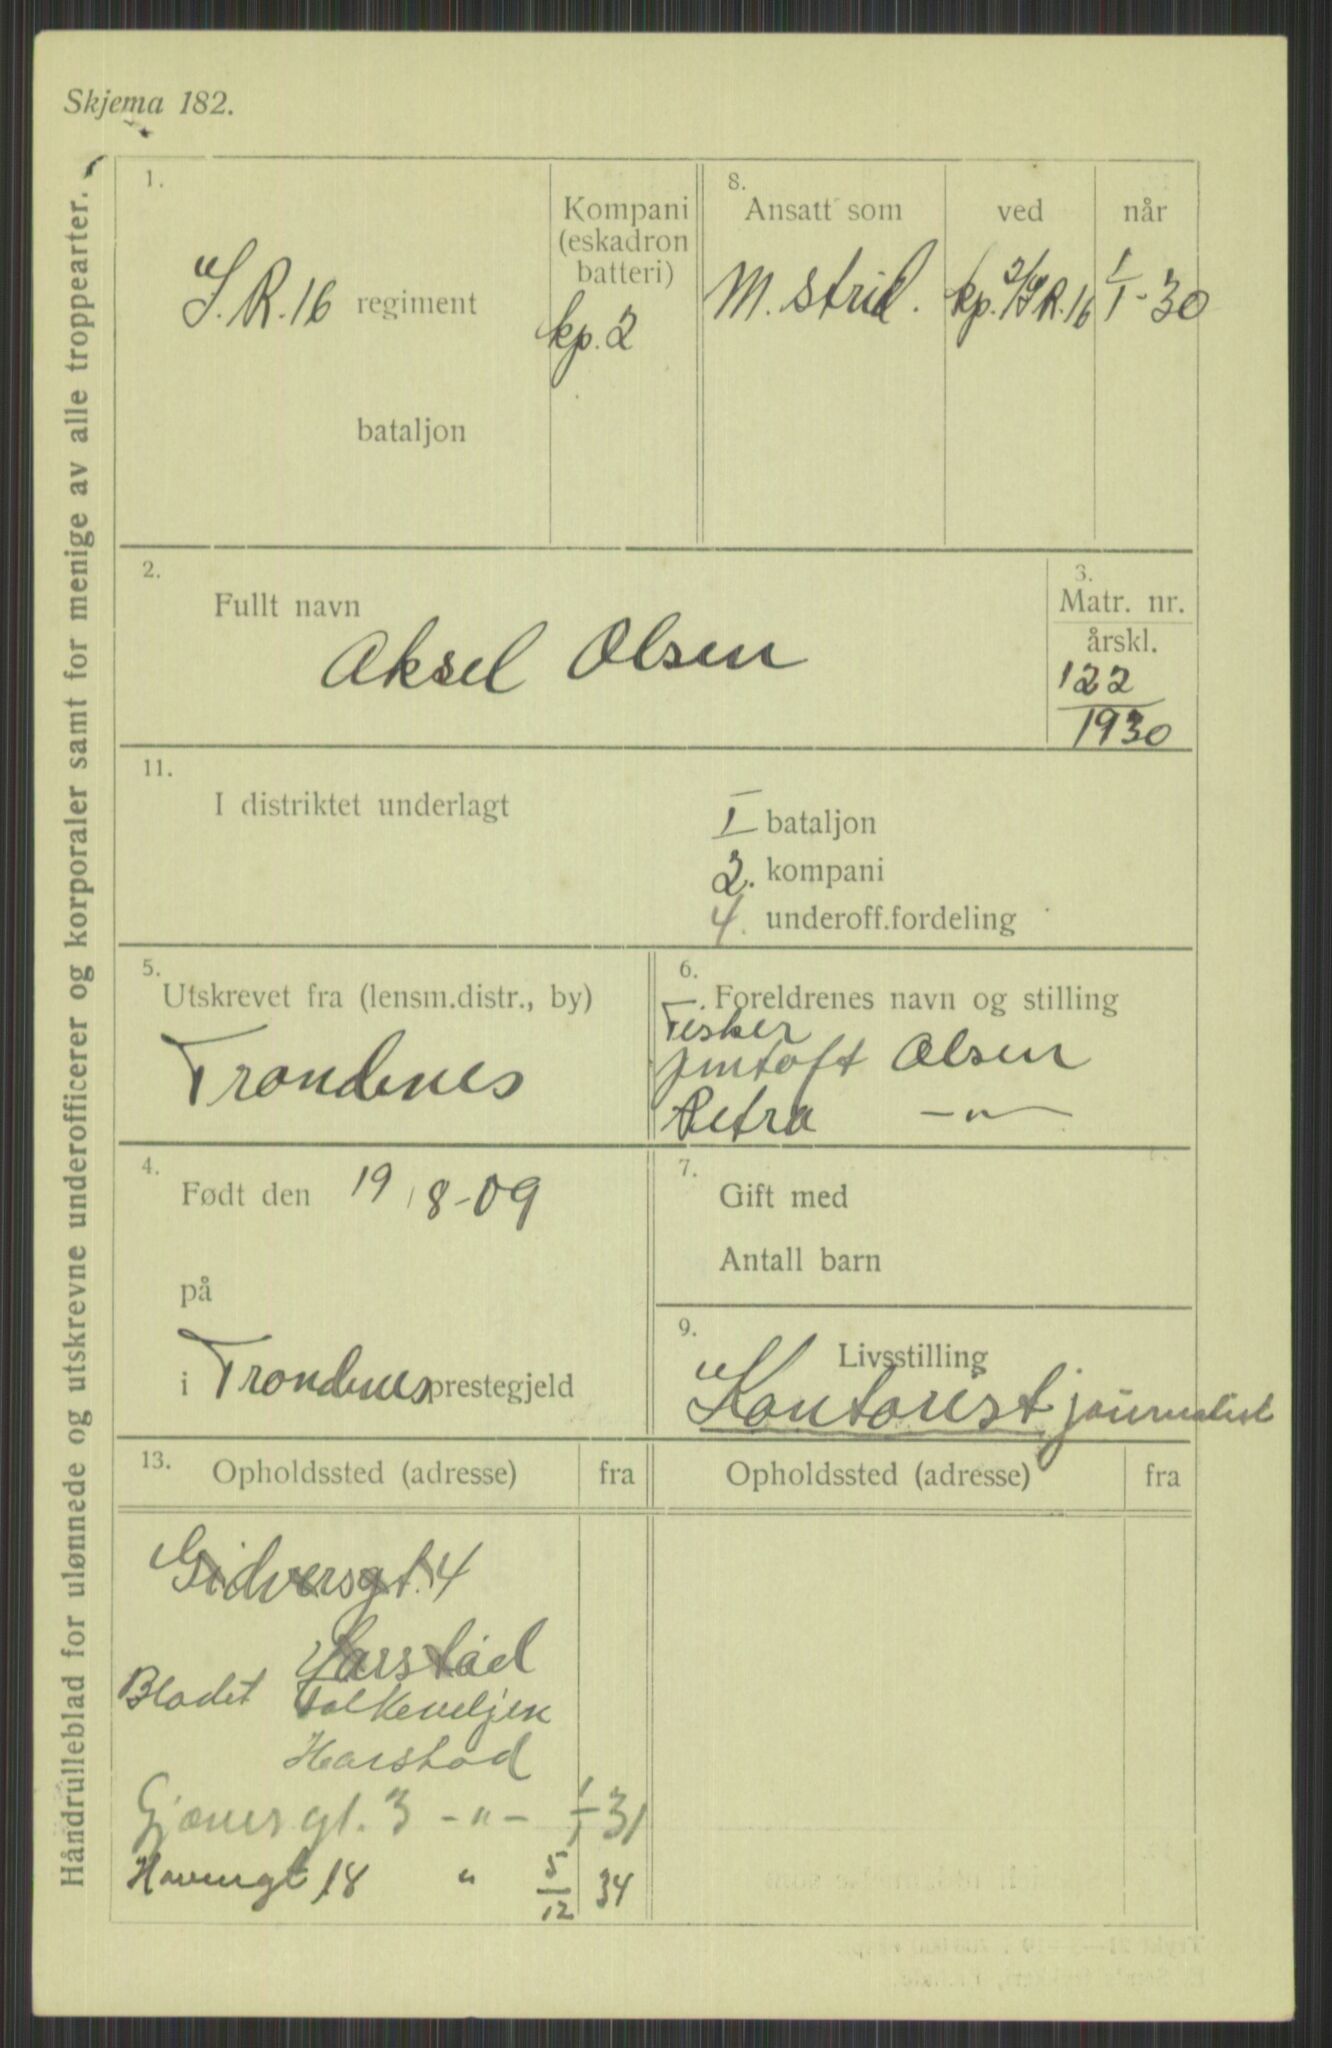 Skjema 182.
Håndrulleblad for ulønnede og utskrevne underofficerer og korporaler samt for menige av alle troppearter.
1.
I.R.16 regiment
bataljon
Kompani
(eskadron
batteri)
kp. 2
8.
Ansatt som
M. strid.
ved
kp. 2/I.R.16
når
1/1-30
2.
Fullt navn
Aksel Olsen
3.
Matr. nr.
årskl.
122
1930
11.
I distriktet underlagt
I bataljon
2. kompani
4. underoff.fordeling
5.
Utskrevet fra (lensm.distr., by)
Trondenes
6.
Foreldrenes navn og stilling
Fisker
Jentoft Olsen
Petra —"—
4.
Født den 19/8-09
på
i Trondenes prestegjeld
7.
Gift med
Antall barn
9.
Livsstilling
Kontorist journalist
13.
Opholdssted (adresse)
fra
Opholdssted (adresse)
fra
4
Harstad
Bladet Folkeviljen
Harstad
Gjævers gt. 3 -"- 1/1 31
Havnegt 18 " 5/12 34